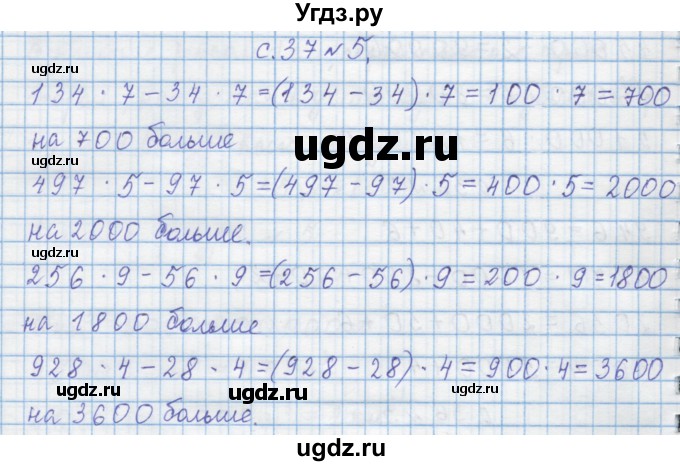 Угдз.ру
с.37 №5.
ugdz.ru ugdz.ru
134 · 7 - 34 · 7 = (134 - 34) · 7 = 100 · 7 = 700
на 700 больше
ugdz.ru ugdz.ru
497 · 5 - 97 · 5 = (497 - 97) · 5 = 400 · 5 = 2000
на 2000 больше.
ugdz.ru ugdz.ru
256 · 9 - 56 · 9 = (256 - 56) · 9 = 200 · 9 = 1800
на 1800 больше
ugdz.ru
928 · 4 - 28 · 4 = (928 - 28) · 4 = 900 · 4 = 3600
ugdz.ru ugdz.ru
на 3600 больше.
ugdz.ru